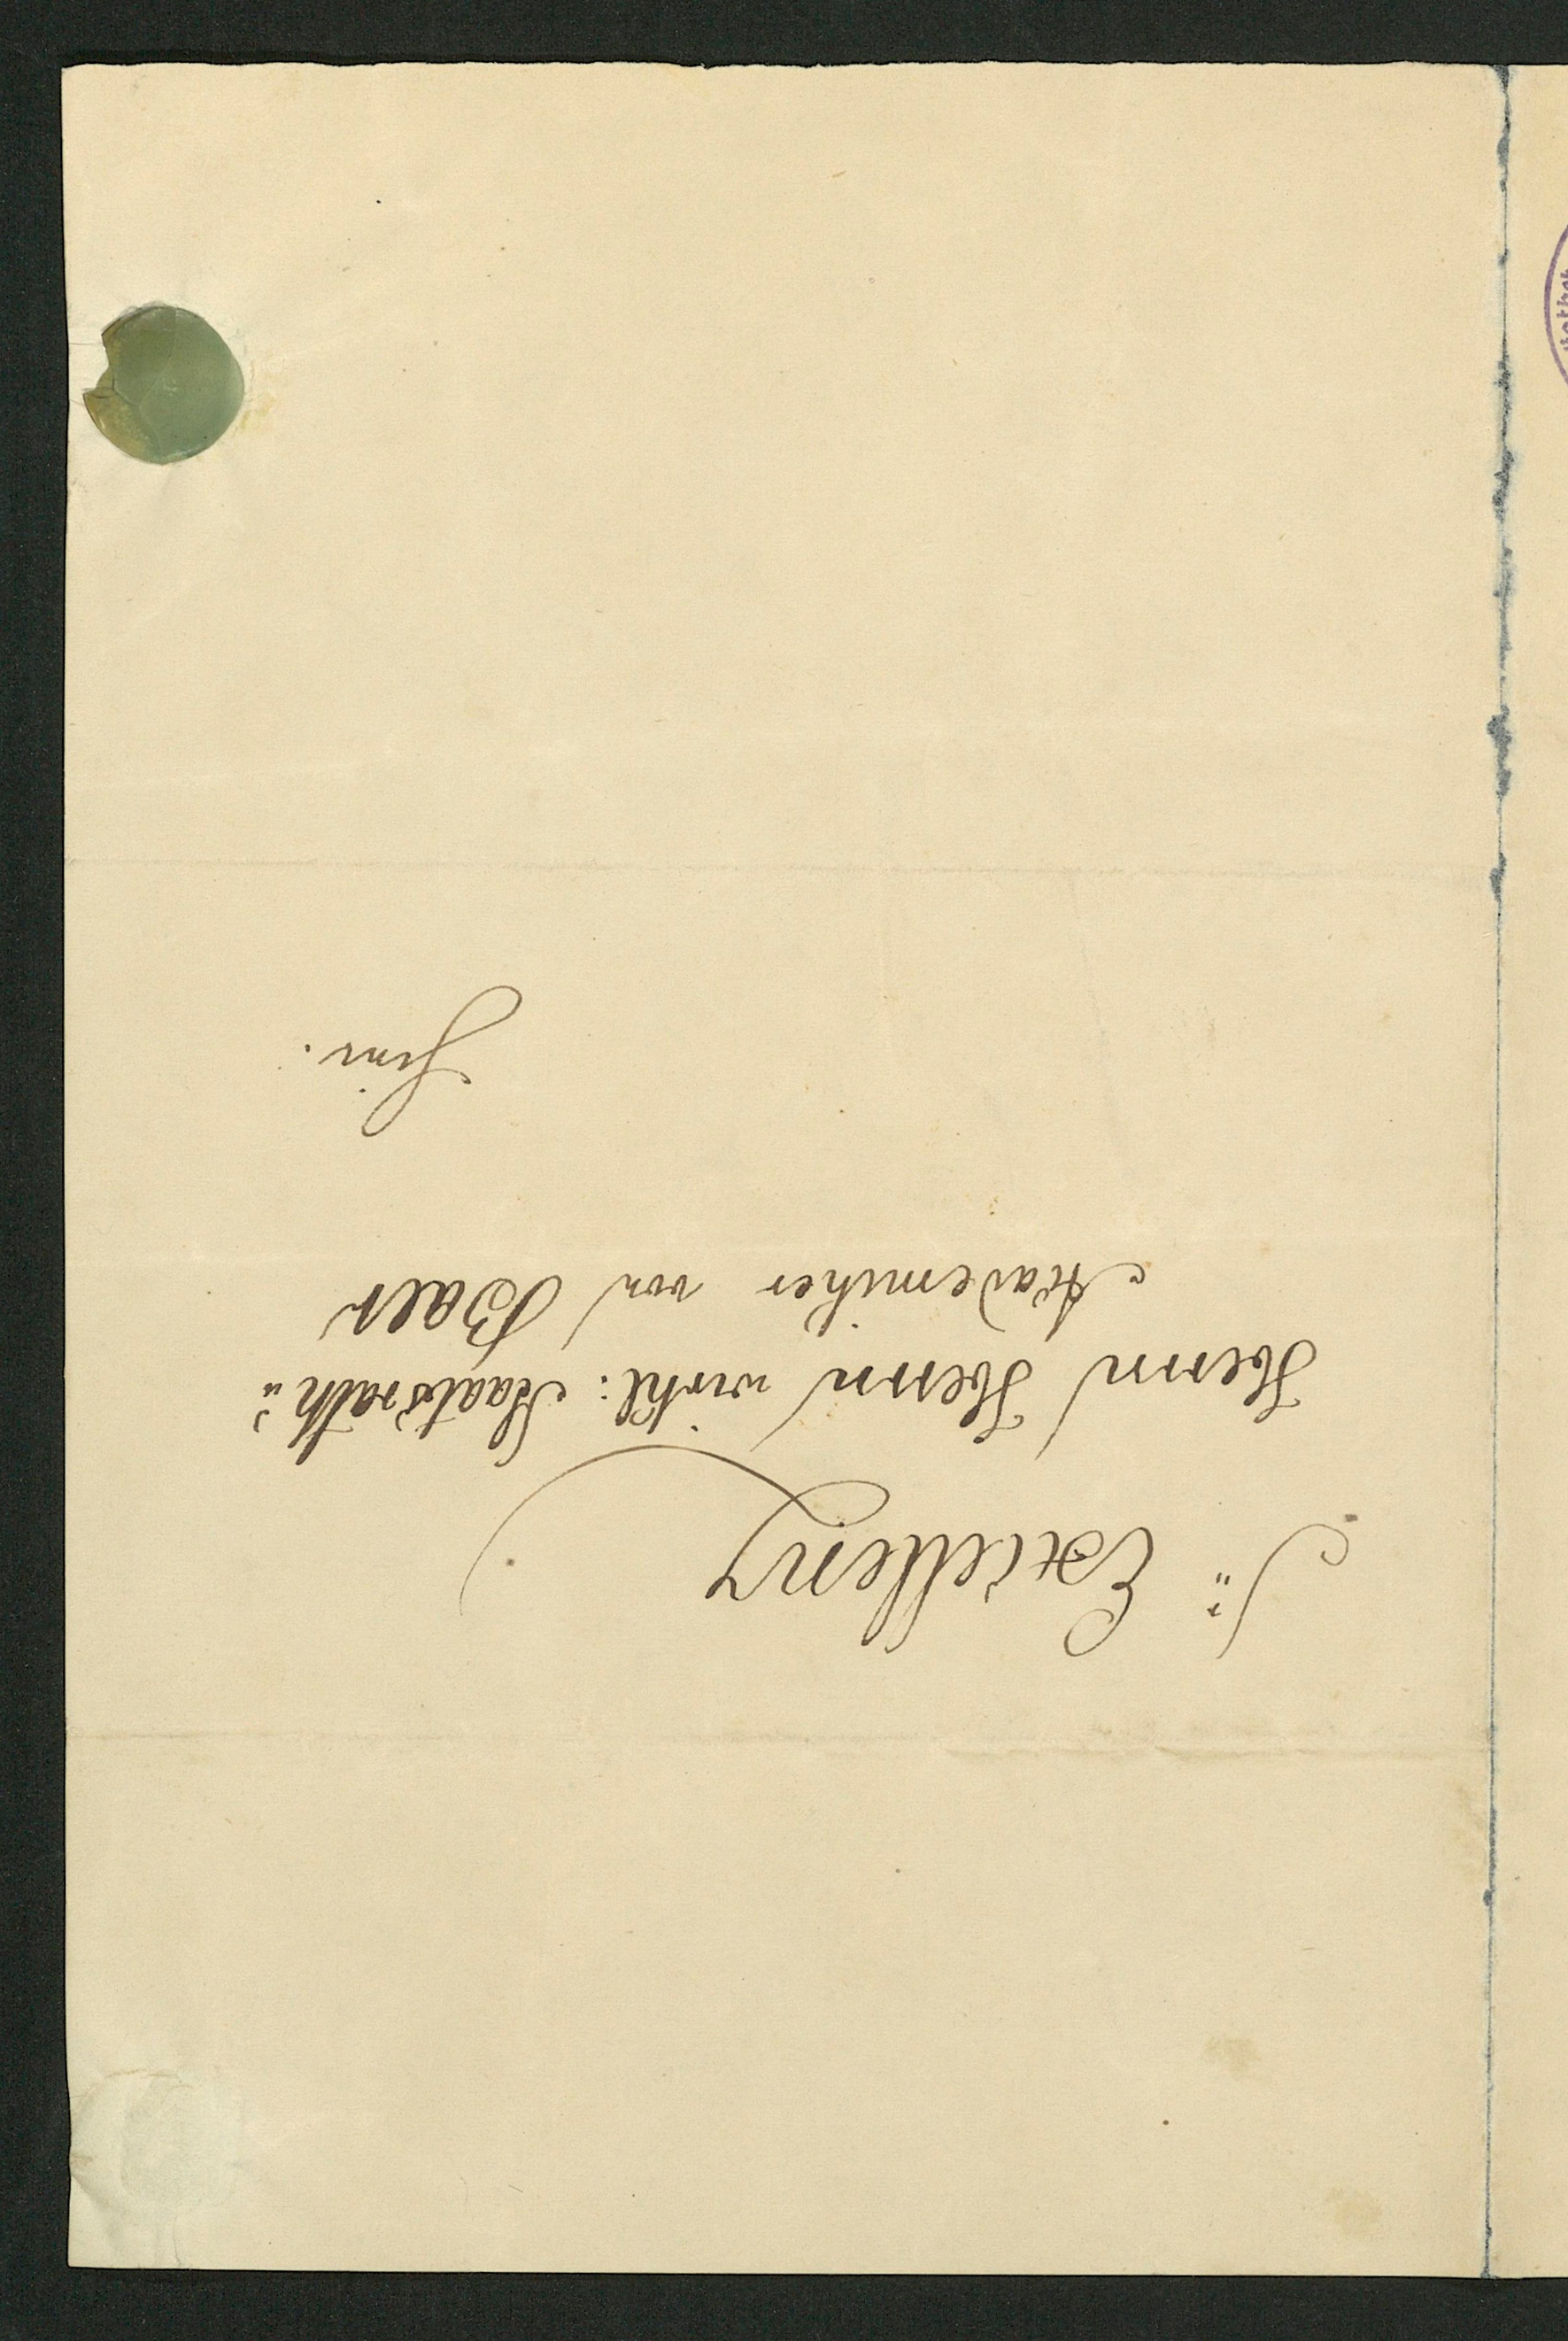 Sr Excellenz
Herrn Herrn wirkl: Staatsrath
Akademiker von Baer
hier.